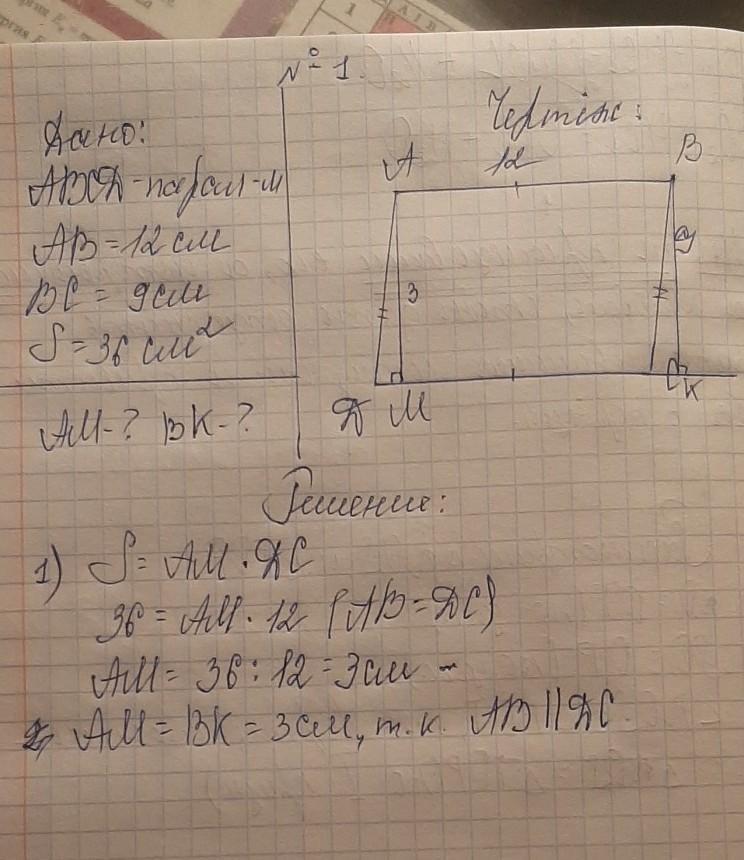 № 1.
Дано:
ABCД-парал-м
AB = 12 см
BC = 9 см
S = 36 см²
AM-? BK-?
Чертёж:
A 12 B
3
Д M K
Решение:
1) S = AM · ДC
36 = AM · 12 {AB = ДC}
AM = 36 : 12 = 3 см
2) AM = BK = 3 см, т.к. AB || ДC.